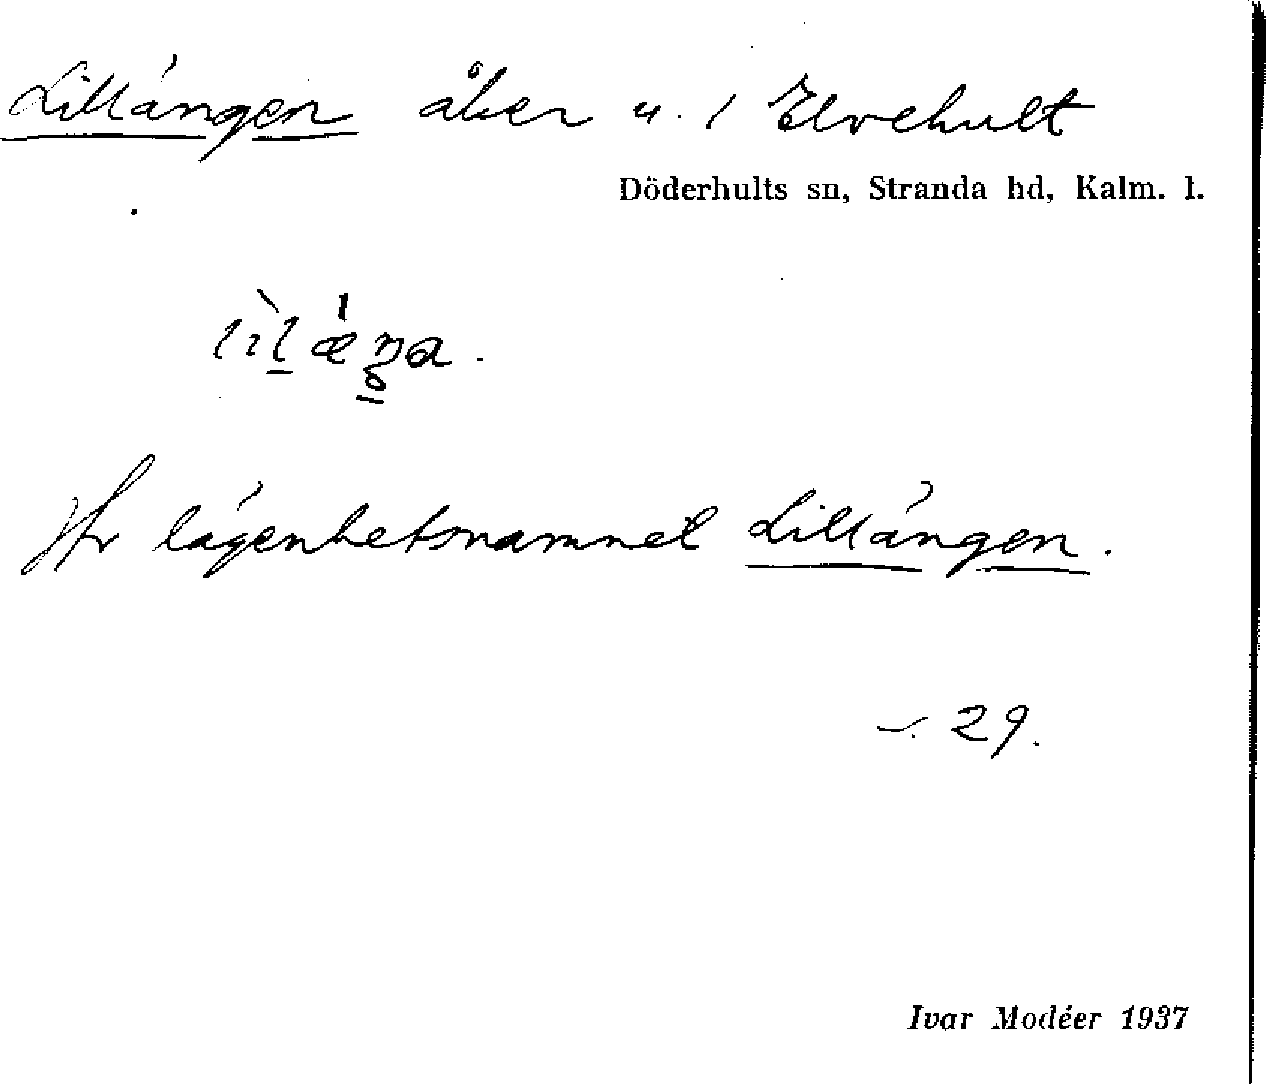 Lillängen åker u. 1 Elvehult
Döderhults sn, Stranda hd, Kalm. l.
Jfr lägenhetsnamnet Lillängen.
29.
Ivar Modéer 1937